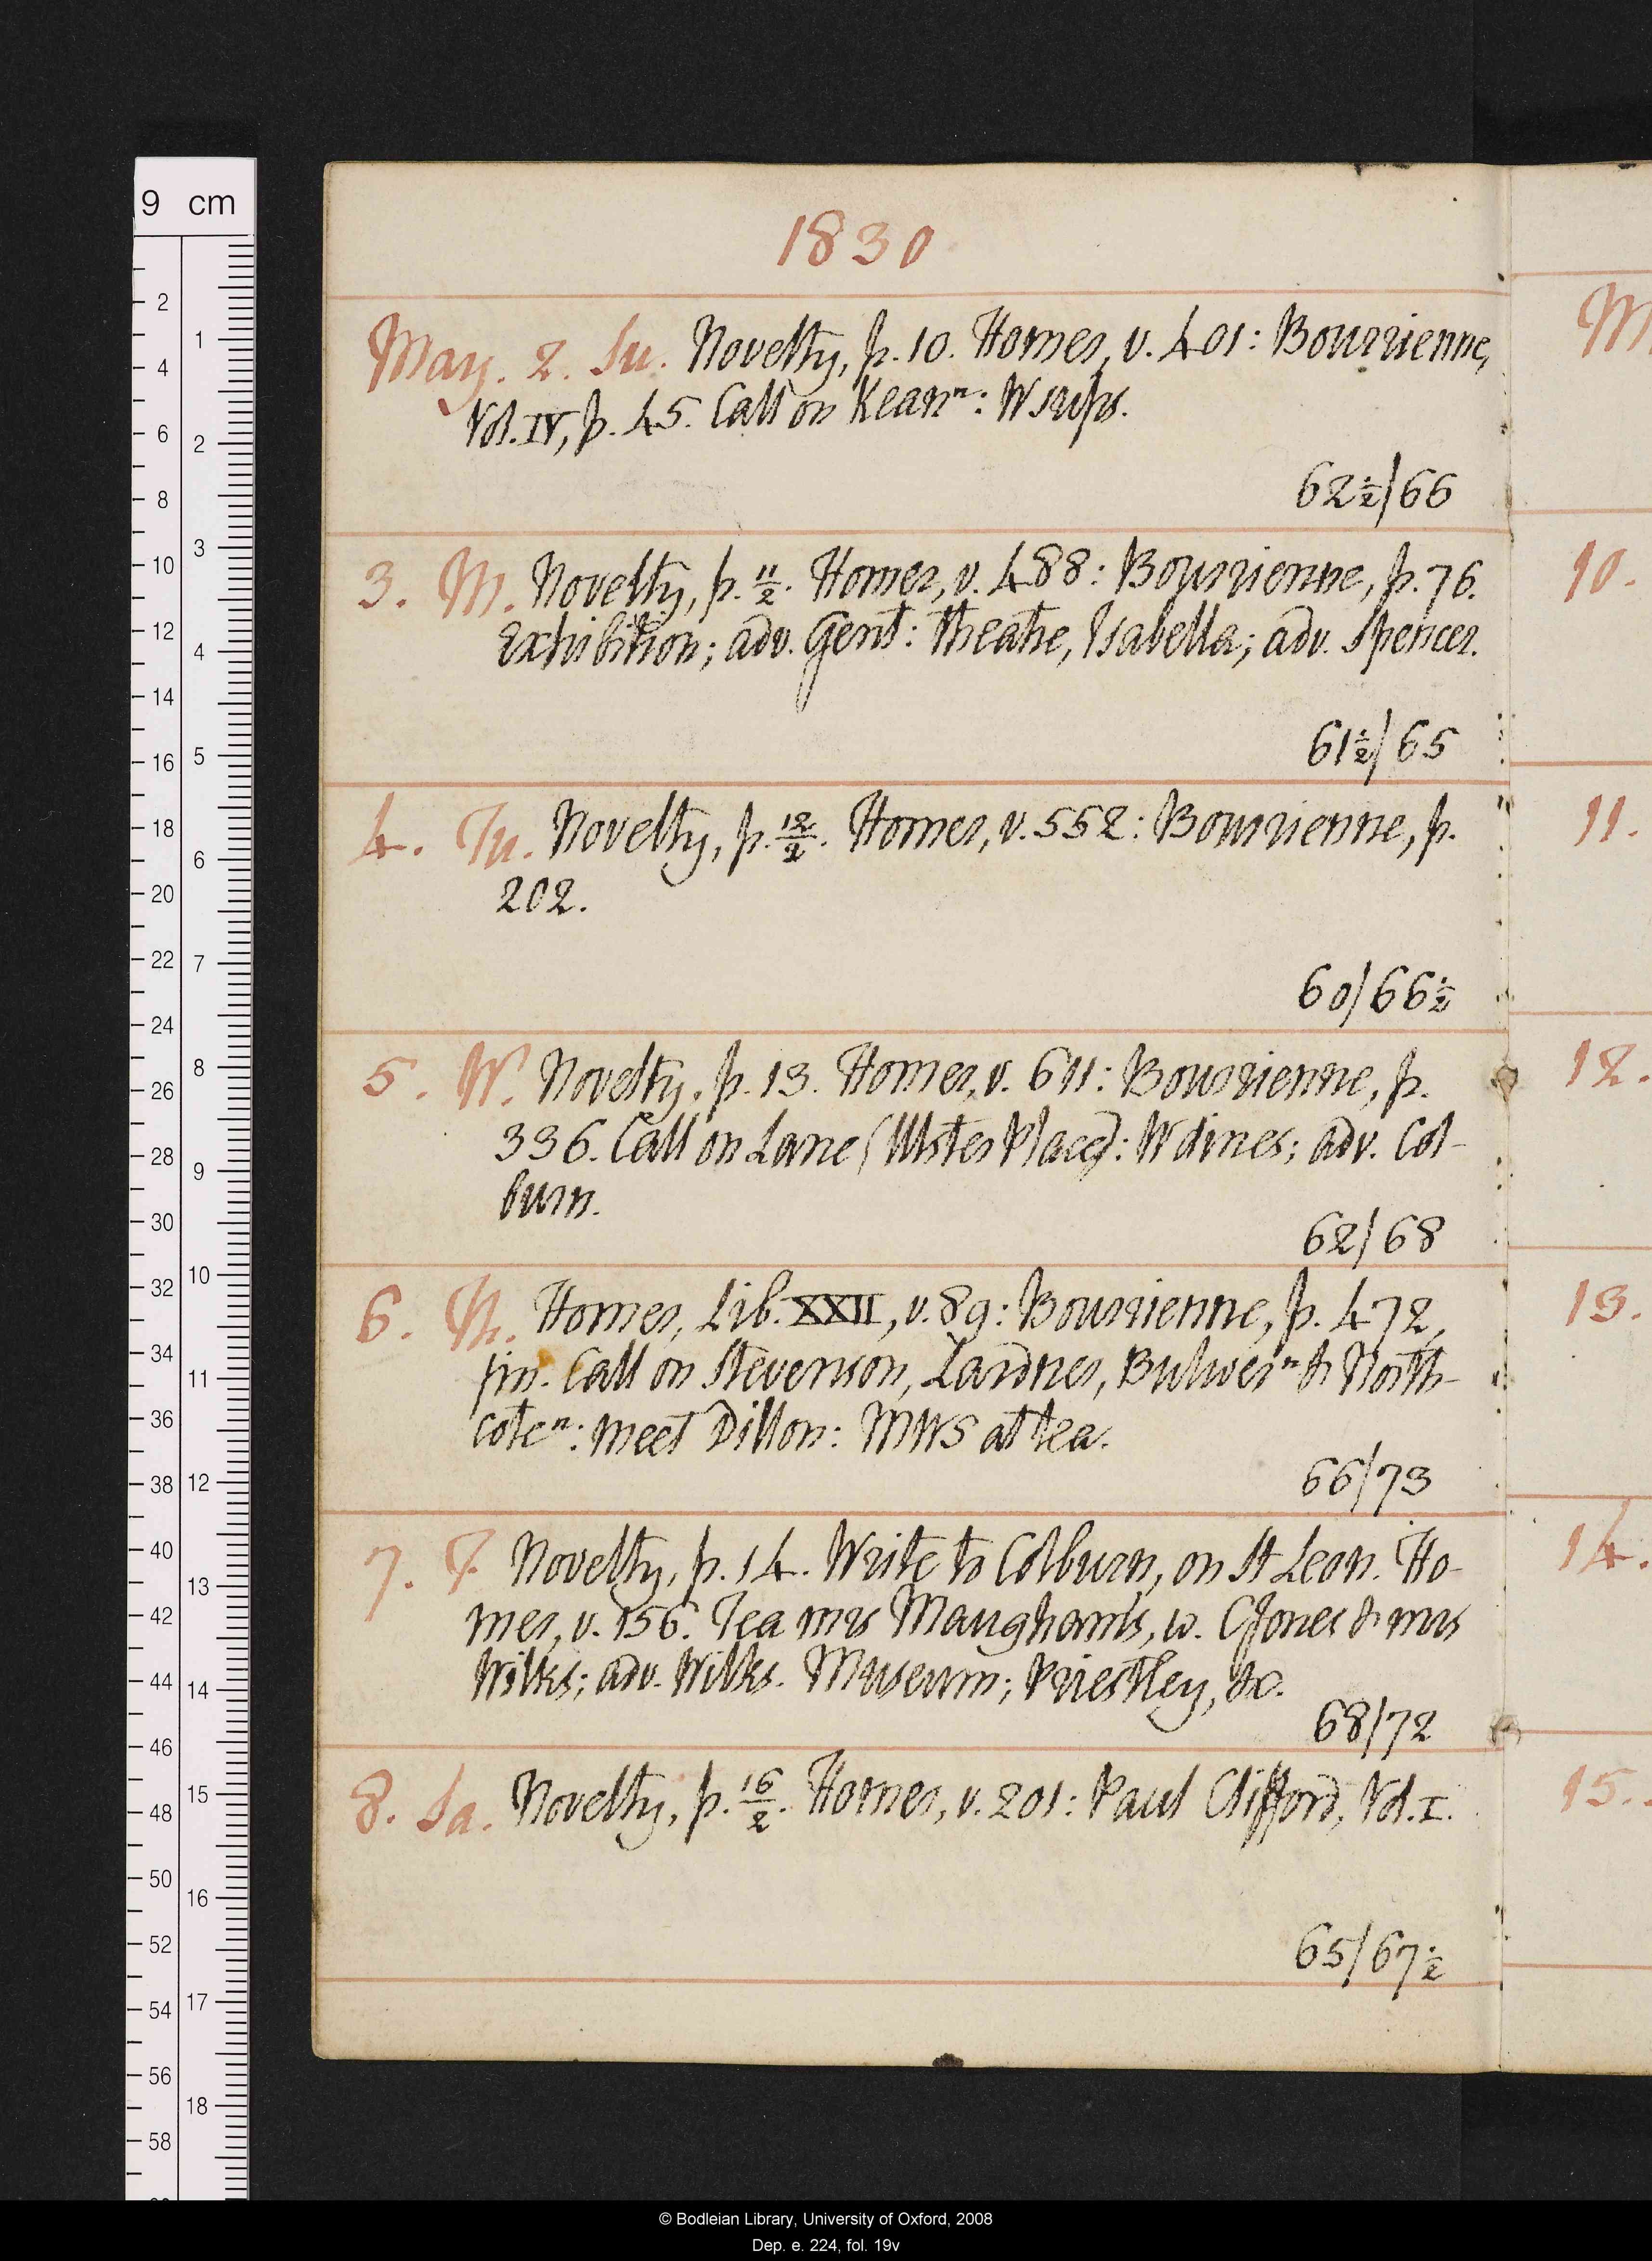 1830
May. 2. Su. Novelty, p. 10. Homer, v. 401: Bourrienne,
Vol. IV, p. 45. Call on Kean n: W sups.
62½/66
3. M. Novelty, p. 11/2. Homer, v. 488: Bourrienne, p. 76.
Exhibition; adv. Gent: theatre, Isabella; adv. Spencer.
61½/65
4. Tu. Novelty, p. 12/2. Homer, v. 552: Bourrienne, p.
202.
60/66½
5. W. Novelty, p. 13. Homer, v. 611: Bourrienne, p.
336. Call on Lane (Ulster Place): W dines; adv. Col-
burn.
62/68
6. Th. Homer, Lib. XXII, v. 89: Bourrienne, p. 472,
fin. Call on Stevenson, Lardner, Bulwer n & North-
cote n: meet Dillon: MWS at tea.
66/73
7. F. Novelty, p. 14. Write to Colburn, on St Leon. Ho-
mer, v. 156. Tea mrs Maugham's, w. CJones & mrs
Wilks; adv. Wilks. Museum; Priestley, &c.
68/72
8. Sa. Novelty, p. 16/2. Homer, v. 201: Paul Clifford, Vol. I.
65/67½
M
10.
11.
12.
13.
14.
15.
9 cm
2
4
6
8
10
12
14
16
18
20
22
24
26
28
30
32
34
36
38
40
42
44
46
48
50
52
54
56
58
1
2
3
4
5
6
7
8
9
10
11
12
13
14
15
16
17
18
© Bodleian Library, University of Oxford, 2008
Dep. e. 224, fol. 19v